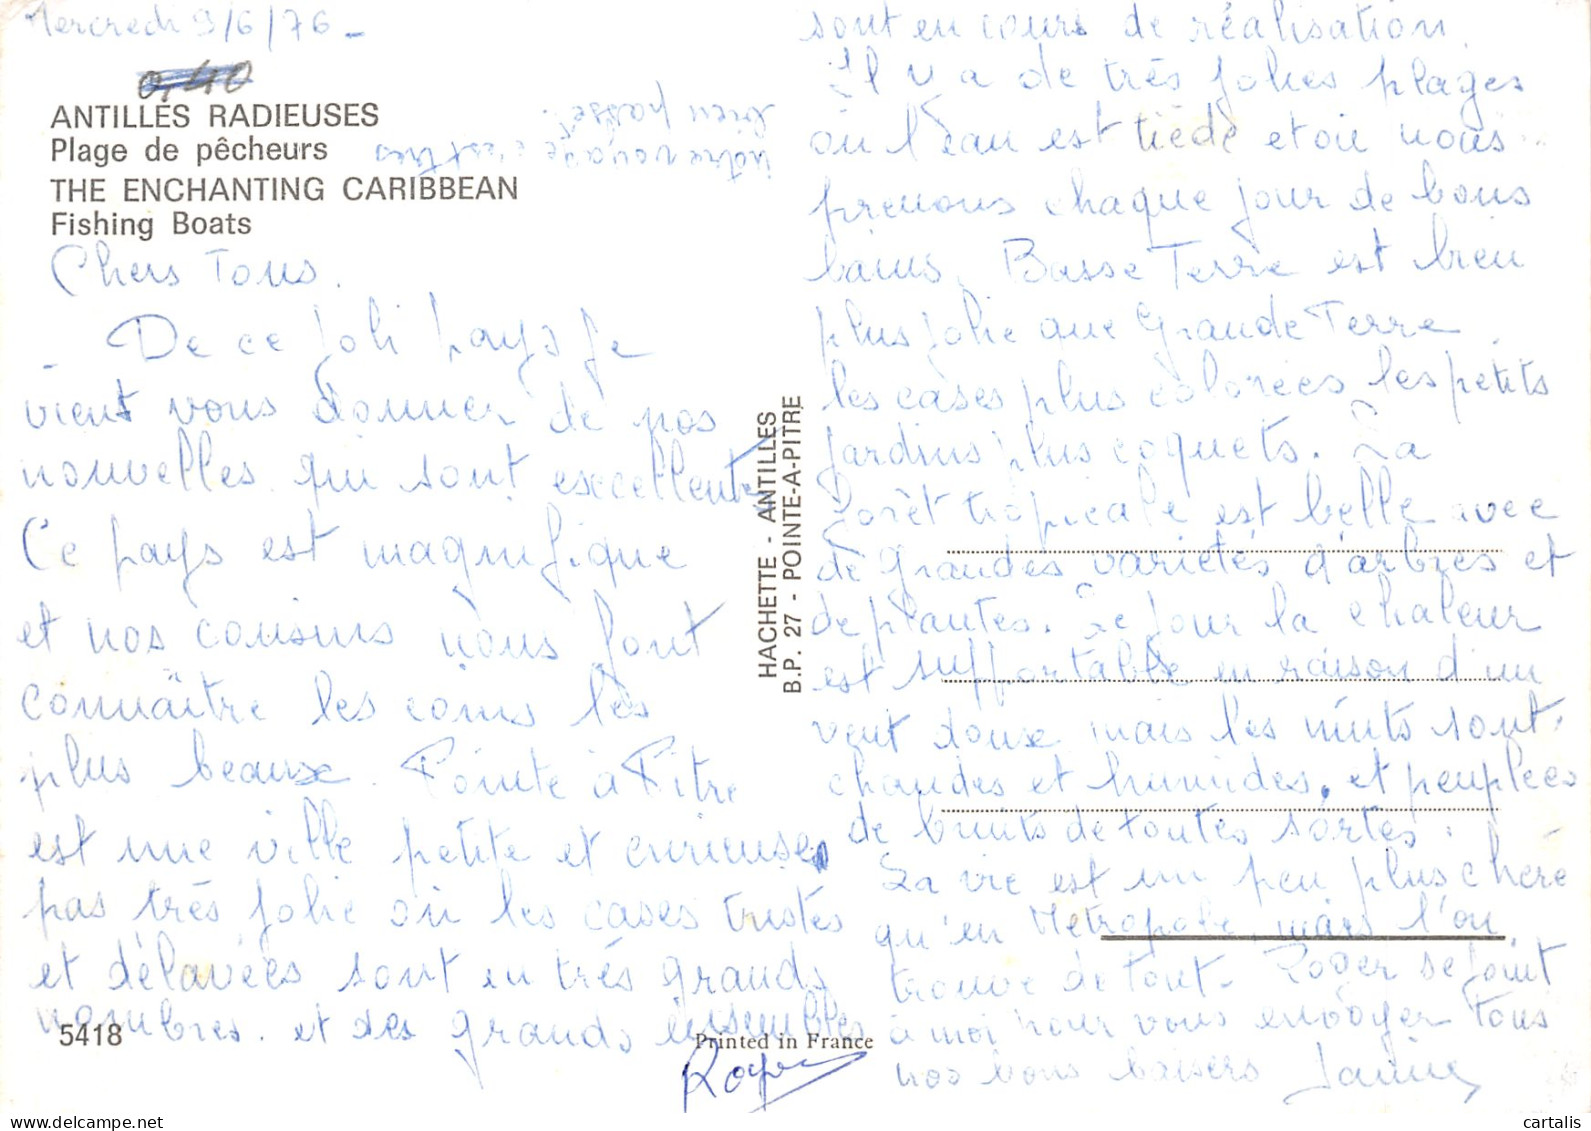 Mercredi 9/6/76 -
0,40
ANTILLES RADIEUSES
Plage de pêcheurs
THE ENCHANTING CARIBBEAN
Fishing Boats
notre voyage s'est très
bien passé.
Chers Tous.
De ce joli pays je
vient vous donner de nos
nouvelles qui sont exccellentes
Ce pays est magnifique
et nos cousins nous font
connaître les coins les
plus beaux. Pointe à Pitre
est une ville petite et curieuse
pas très jolie où les cases tristes
et délavées sont en très grands
nombres. et des grands ensembles
sont en cours de réalisation.
Il y a de très jolies plages
où l'eau est tiède et où nous
prenons chaque jour de bons
bains. Basse Terre est bien
plus jolie que Grande Terre,
les cases plus colorées les petits
jardins plus coquets. La
forêt tropicale est belle avec
de grandes variétés d'arbres et
de plantes. Le jour la chaleur
est supportable en raison d'un
vent doux mais les nuits sont
chaudes et humides, et peuplées
de bruits de toutes sortes.
La vie est un peu plus chère
qu'en Métropole, mais l'on
trouve de tout. Roger se joint
à moi pour vous envoyer tous
nos bons baisers Janine
Roger
HACHETTE - ANTILLES
B.P. 27 - POINTE-A-PITRE
5418
Printed in France
cartalis